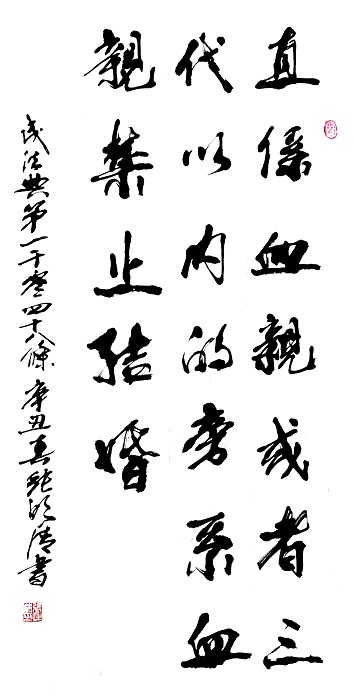 直係血親或者三
代以内的旁系血
親禁止結婚
民法典第一千零四十八條辛丑春張明清書